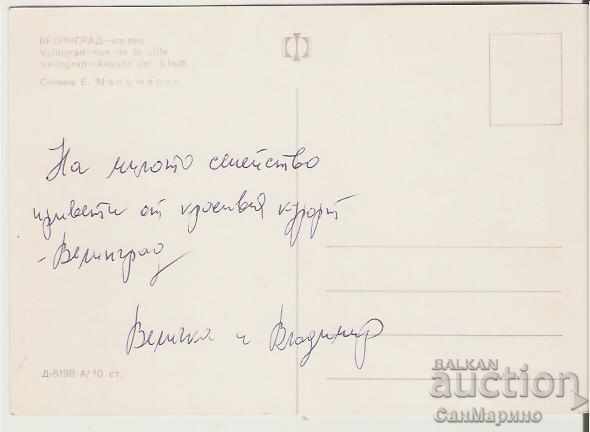 ВЕЛИНГРАД — изглед
Velingrad — vue de la ville
Velingrad — Ansicht der Stadt
Снимка Е.
На милото семейство
привети от красивия курорт
- Велинград
Величка и Владимир
Д-8198-А/10 ст.
BALKAN
auction
СанМарино